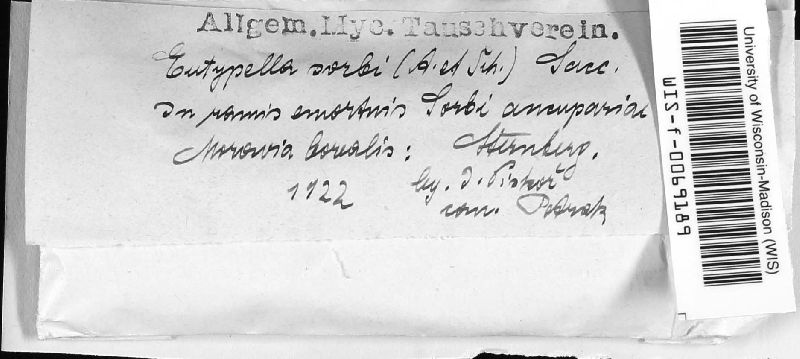 Allgem. Myc. Tauschverein.
Eutypella sorbi (A. et Sch.) Sacc.
In ramis emortuis Sorbi aucupariae
Moravia borealis: Sternberg.
1922 leg. J. Piskoř
com. Petrak
University of Wisconsin-Madison (WIS)
WIS-f-0069189